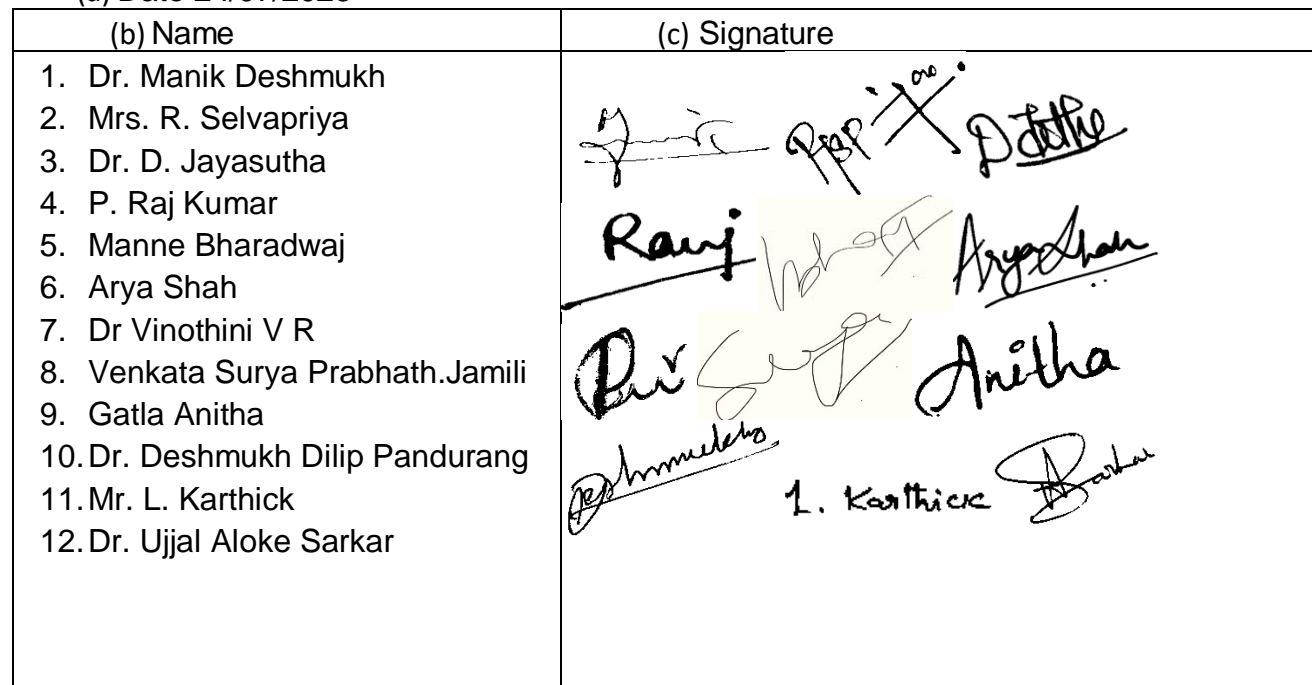 (b) Name
(c) Signature
1. Dr. Manik Deshmukh
2. Mrs. R. Selvapriya
3. Dr. D. Jayasutha
4. P. Raj Kumar
5. Manne Bharadwaj
6. Arya Shah
7. Dr Vinothini V R
8. Venkata Surya Prabhath.Jamili
9. Gatla Anitha
10. Dr. Deshmukh Dilip Pandurang
11. Mr. L. Karthick
12. Dr. Ujjal Aloke Sarkar
Arya Shah
Anitha
1. Karthick